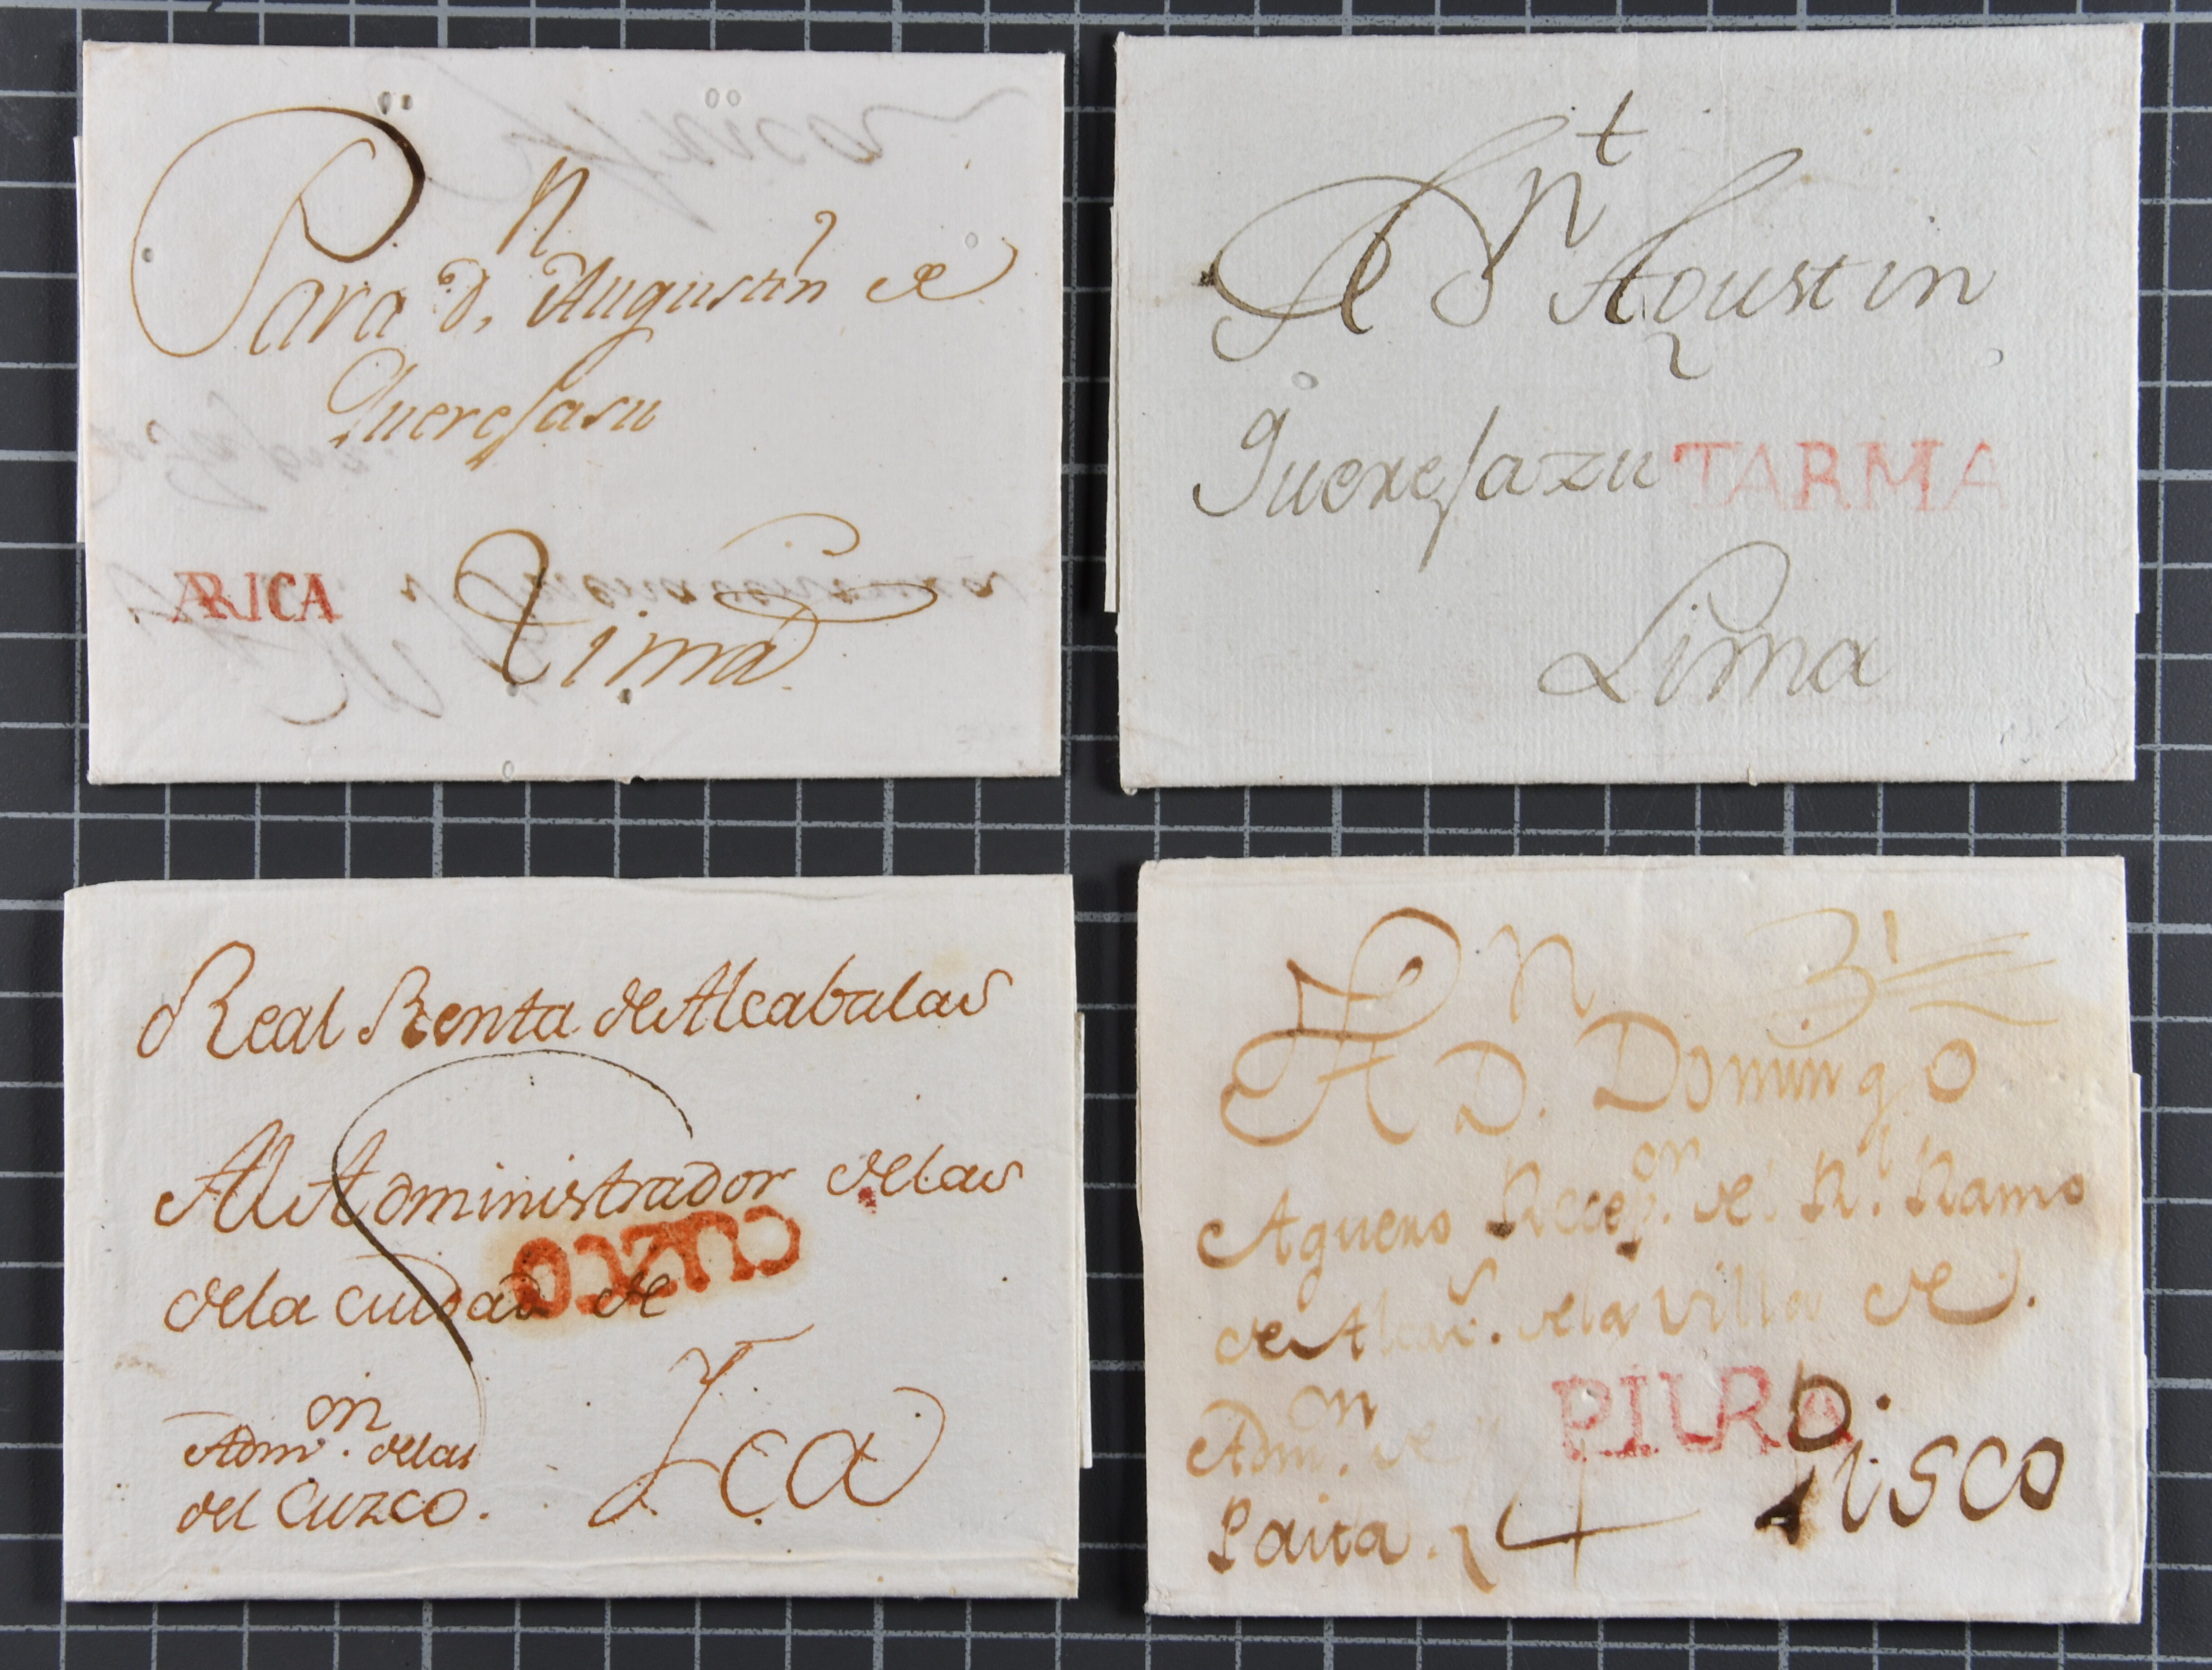 Para D.n Augustin de
Querejasu
ARICA
Lima
A Dn Agustin
Querejazu
TARMA
Lima
Real Renta de Alcabalas
Al Administrador de las
CUZCO
de la Ciudad de
Ica
Adm.on de las
del Cuzco.
A D.n Domingo
3
Aguero Recep.on del R.l Ramo
de Alcav.s de la Villa de
PIURA
Adm.on de
Paita.
Pisco